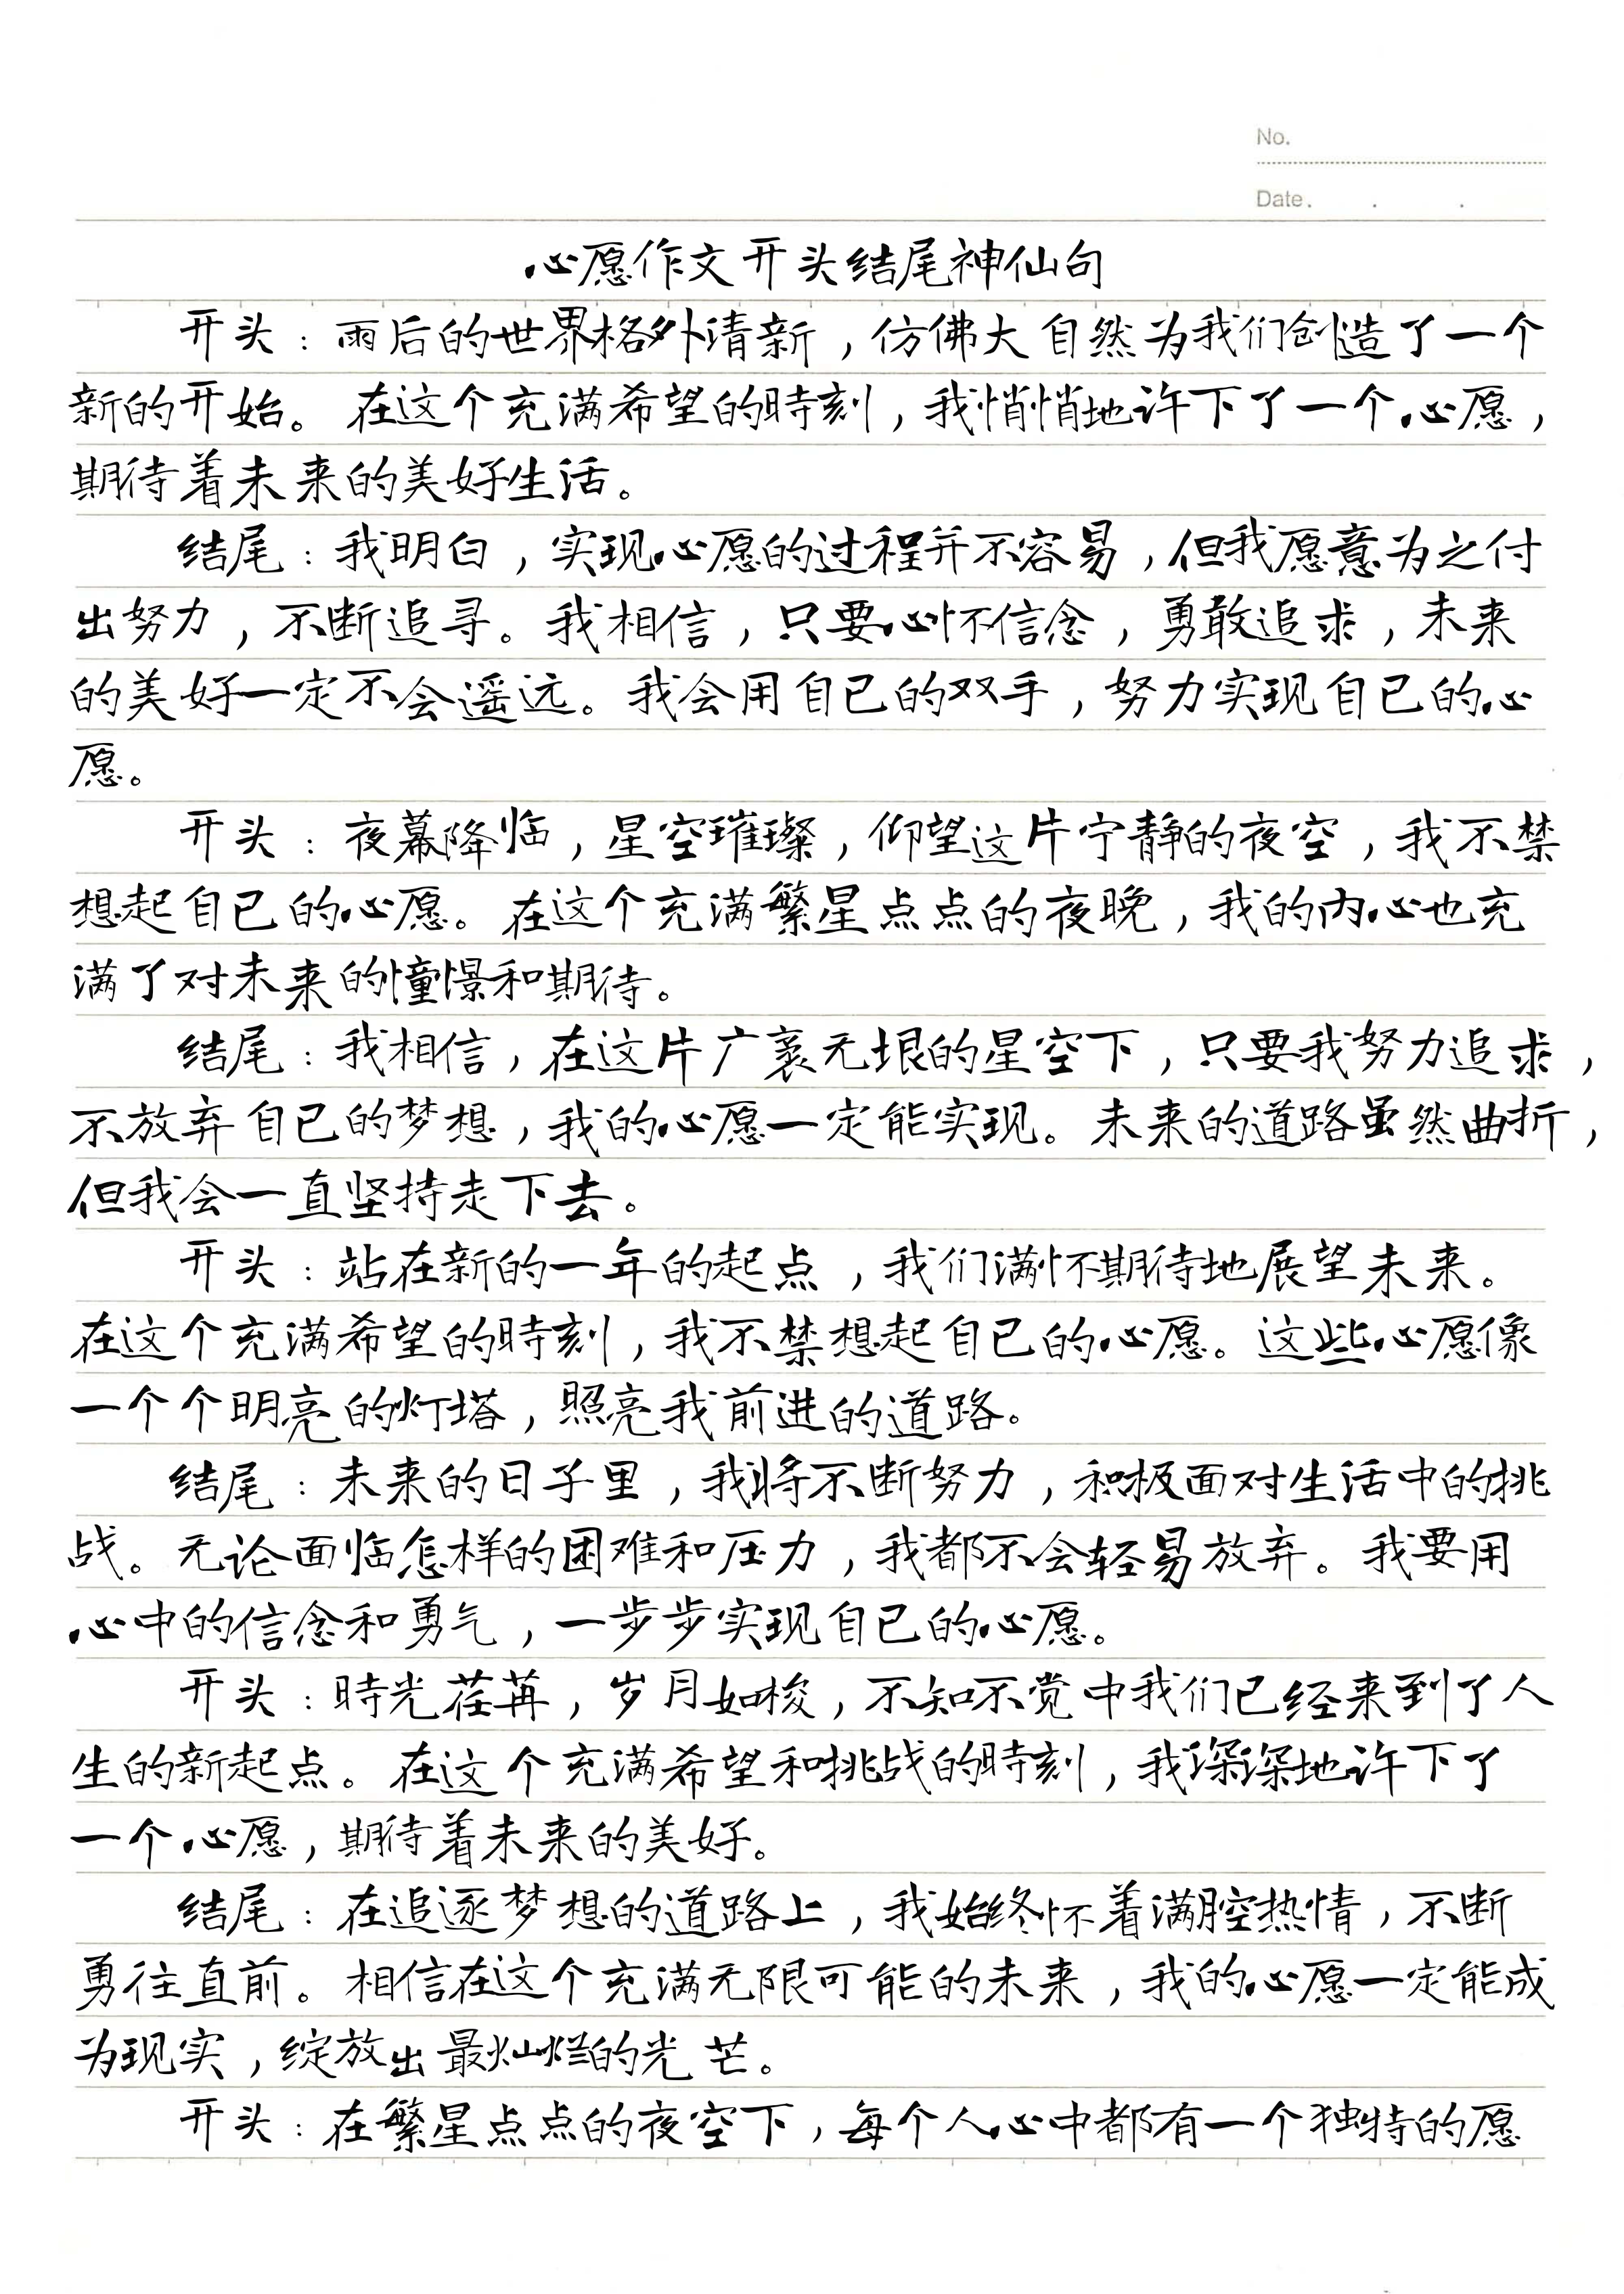 No.
Date.   .   .
心愿作文开头结尾神仙句
开头：雨后的世界格外清新，仿佛大自然为我们创造了一个
新的开始。在这个充满希望的時刻，我悄悄地许下了一个心愿，
期待着未来的美好生活。
结尾：我明白，实现心愿的过程并不容易，但我愿意为之付
出努力，不断追寻。我相信，只要心怀信念，勇敢追求，未来
的美好一定不会遥远。我会用自己的双手，努力实现自己的心
愿。
开头：夜幕降临，星空璀璨，仰望这片宁静的夜空，我不禁
想起自己的心愿。在这个充满繁星点点的夜晚，我的内心也充
满了对未来的憧憬和期待。
结尾：我相信，在这片广袤无垠的星空下，只要我努力追求，
不放弃自己的梦想，我的心愿一定能实现。未来的道路虽然曲折，
但我会一直坚持走下去。
开头：站在新的一年的起点，我们满怀期待地展望未来。
在这个充满希望的時刻，我不禁想起自己的心愿。这些心愿像
一个个明亮的灯塔，照亮我前进的道路。
结尾：未来的日子里，我将不断努力，积极面对生活中的挑
战。无论面临怎样的困难和压力，我都不会轻易放弃。我要用
心中的信念和勇气，一步步实现自己的心愿。
开头：時光荏苒，岁月如梭，不知不觉中我们已经来到了人
生的新起点。在这个充满希望和挑战的時刻，我深深地许下了
一个心愿，期待着未来的美好。
结尾：在追逐梦想的道路上，我始终怀着满腔热情，不断
勇往直前。相信在这个充满无限可能的未来，我的心愿一定能成
为现实，绽放出最灿烂的光芒。
开头：在繁星点点的夜空下，每个人心中都有一个独特的愿